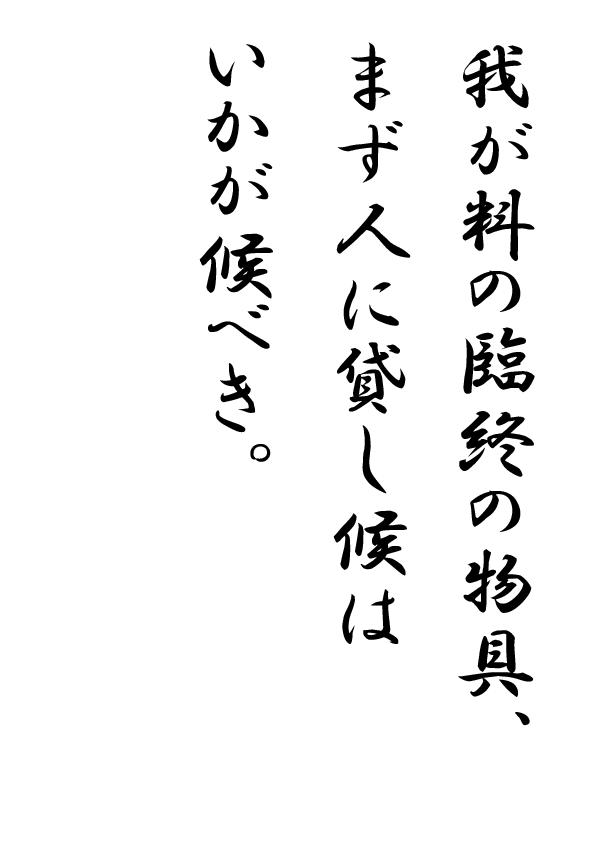 我が料の臨終の物具、
まず人に貸し候は
いかが候べき。